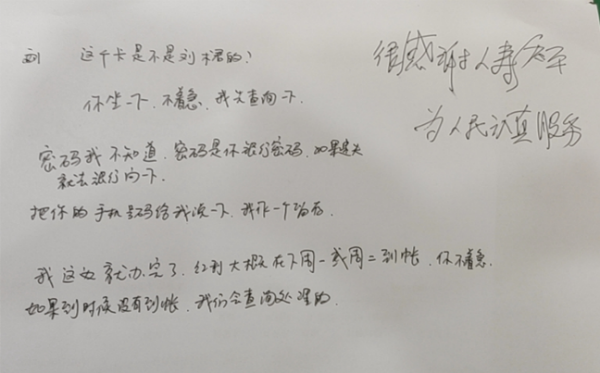 这个卡是不是刘君的？
你坐一下，不着急，我先查询一下．
密码我不知道，密码是你银行密码，如果忘
就去银行问一下．
把你的手机号码给我说一下，我作一个留存．
我这边就办完了，红利大概在下周一或周二到帐，你不着急．
如果到时候没有到帐，我们会查询处理的．
很感谢人寿
为人民认真服务